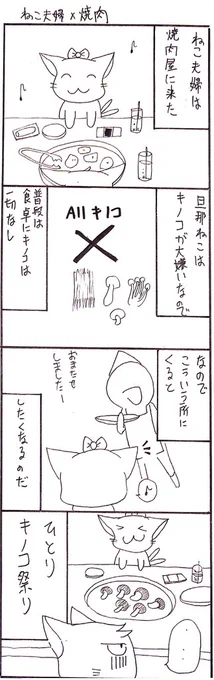 ねこ夫婦×焼肉
ねこ夫婦は
焼肉屋に来た
旦那ねこは
キノコが大嫌いなので
Allキノコ
普段は
食卓にキノコは
一切なし
なので
こういう所に
くると
おまたせ
しましたー
したくなるのだ
ひとり
キノコ祭り
・・・